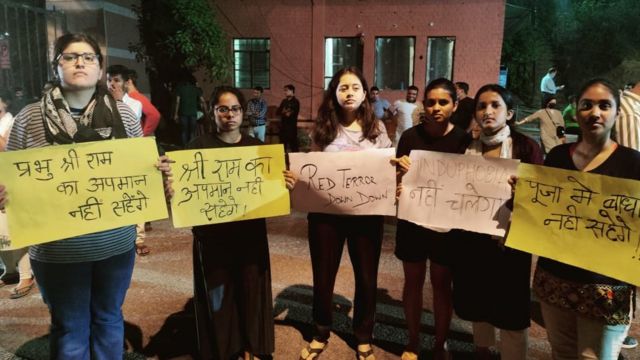 प्रभु श्री राम
का अपमान
नहीं सहेंगे
श्री राम का
अपमान नहीं
सहेंगे!
RED TERROR
DOWN DOWN
HINDUPHOBIA
नहीं चलेगा
पूजा मे बाधा
नहीं सहेंगे!!